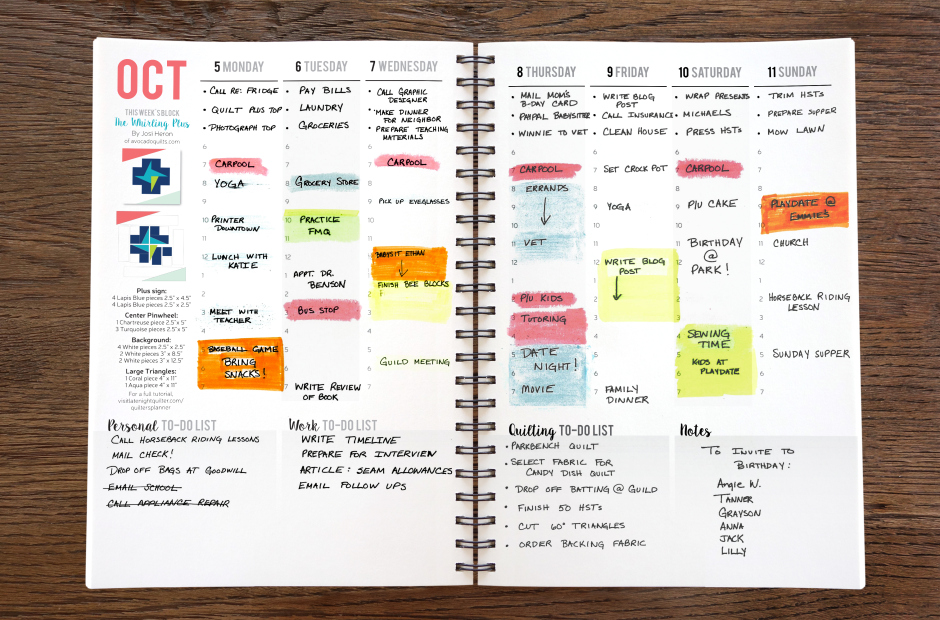 OCT
THIS WEEK'S BLOCK
The Whirling Plus
By Josi Heron
of avocadoquilts.com
Plus sign:
4 Lapis Blue pieces 2.5" x 4.5"
4 Lapis Blue pieces 2.5" x 2.5"
Center Pinwheel:
1 Chartreuse piece 2.5"x 5"
3 Turquoise pieces 2.5"x 5"
Background:
4 White pieces 2.5" x 2.5"
2 White pieces 3" x 8.5"
2 White pieces 3" x 12.5"
Large Triangles:
1 Coral piece 4" x 11"
1 Aqua piece 4" x 11"
For a full tutorial,
visitlatenightquilter.com/
quiltersplanner
5 MONDAY
• CALL RE: FRIDGE
• QUILT PLUS TOP
• PHOTOGRAPH TOP
6
7 CARPOOL
8 YOGA
9
10 PRINTER
DOWNTOWN
11
12 LUNCH WITH
KATIE
1
2
3 MEET WITH
TEACHER
4
BASEBALL GAME
BRING
SNACKS!
6 TUESDAY
• PAY BILLS
• LAUNDRY
• GROCERIES
6
7
8 GROCERY STORE
9
10 PRACTICE
FMQ
11
12
1 APPT. DR.
BENSON
2
3 BUS STOP
4
5
6
7 WRITE REVIEW
OF BOOK
7 WEDNESDAY
• CALL GRAPHIC
DESIGNER
• MAKE DINNER
FOR NEIGHBOR
• PREPARE TEACHING
MATERIALS
6
7 CARPOOL
8
9 PICK UP EYEGLASSES
10
11
BABYSIT ETHAN
FINISH BEE BLOCKS
2
3
4
5
6 GUILD MEETING
7
8 THURSDAY
• MAIL MOM'S
B-DAY CARD
• PAYPAL BABYSITTER
• WINNIE TO VET
6
7 CARPOOL
8 ERRANDS
9
10
11 VET
12
1
2 P/U KIDS
3 TUTORING
4
5 DATE
NIGHT!
6
7 MOVIE
9 FRIDAY
• WRITE BLOG
POST
• CALL INSURANCE
• CLEAN HOUSE
6
7 SET CROCK POT
8
9 YOGA
10
11
12 WRITE BLOG
POST
1
2
3
4
5
6
7 FAMILY
DINNER
10 SATURDAY
• WRAP PRESENTS
• MICHAELS
• PRESS HSTs
6
7 CARPOOL
8
9 P/U CAKE
10
11 BIRTHDAY
@
PARK!
12
1
2
3
4 SEWING
TIME
5 KIDS AT
PLAYDATE
6
7
11 SUNDAY
• TRIM HSTs
• PREPARE SUPPER
• MOW LAWN
6
7
8
9 PLAYDATE @
EMMIE'S
10
11 CHURCH
12
1
2 HORSEBACK RIDING
LESSON
3
4
5 SUNDAY SUPPER
6
7
Personal TO-DO LIST
CALL HORSEBACK RIDING LESSONS
MAIL CHECK!
DROP OFF BAGS AT GOODWILL
EMAIL SCHOOL
CALL APPLIANCE REPAIR
Work TO-DO LIST
WRITE TIMELINE
PREPARE FOR INTERVIEW
ARTICLE: SEAM ALLOWANCES
EMAIL FOLLOW UPS
Quilting TO-DO LIST
• PARKBENCH QUILT
• SELECT FABRIC FOR
CANDY DISH QUILT
• DROP OFF BATTING @ GUILD
• FINISH 50 HSTs
• CUT 60° TRIANGLES
• ORDER BACKING FABRIC
Notes
TO INVITE TO
BIRTHDAY:
Angie W.
TANNER
GRAYSON
ANNA
JACK
LILLY